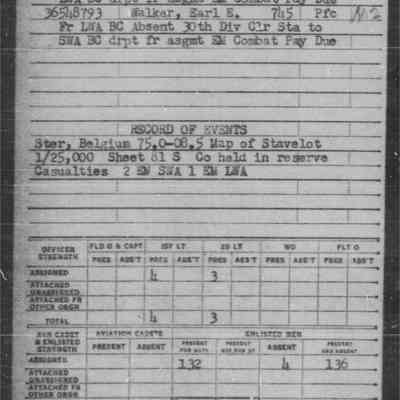 LWA BC drpt fr asgmt EM Combat Pay Due
36548793 Walker, Earl E. 745 Pfc
Fr LWA BC Absent 30th Div Clr Sta to
SWA BC drpt fr asgmt EM Combat Pay Due
RECORD OF EVENTS
Ster, Belgium 75.0-08.5 Map of Stavelot
1/25,000 Sheet 81 S Co held in reserve
Casualties 2 EM SWA 1 EM LWA
OFFICER STRENGTH FLD O & CAPT 1ST LT 2D LT WO FLT O
PRES ABS'T PRES ABS'T PRES ABS'T PRES ABS'T PRES ABS'T
ASSIGNED 4 3
ATTACHED UNASSIGNED
ATTACHED FR OTHER ORGN
TOTAL 4 3
AVN CADET & ENLISTED STRENGTH AVIATION CADETS ENLISTED MEN
PRESENT ABSENT PRESENT FOR DUTY PRESENT NOT FOR DY ABSENT PRESENT AND ABSENT
ASSIGNED 132 4 136
ATTACHED UNASSIGNED
ATTACHED FR OTHER ORGN